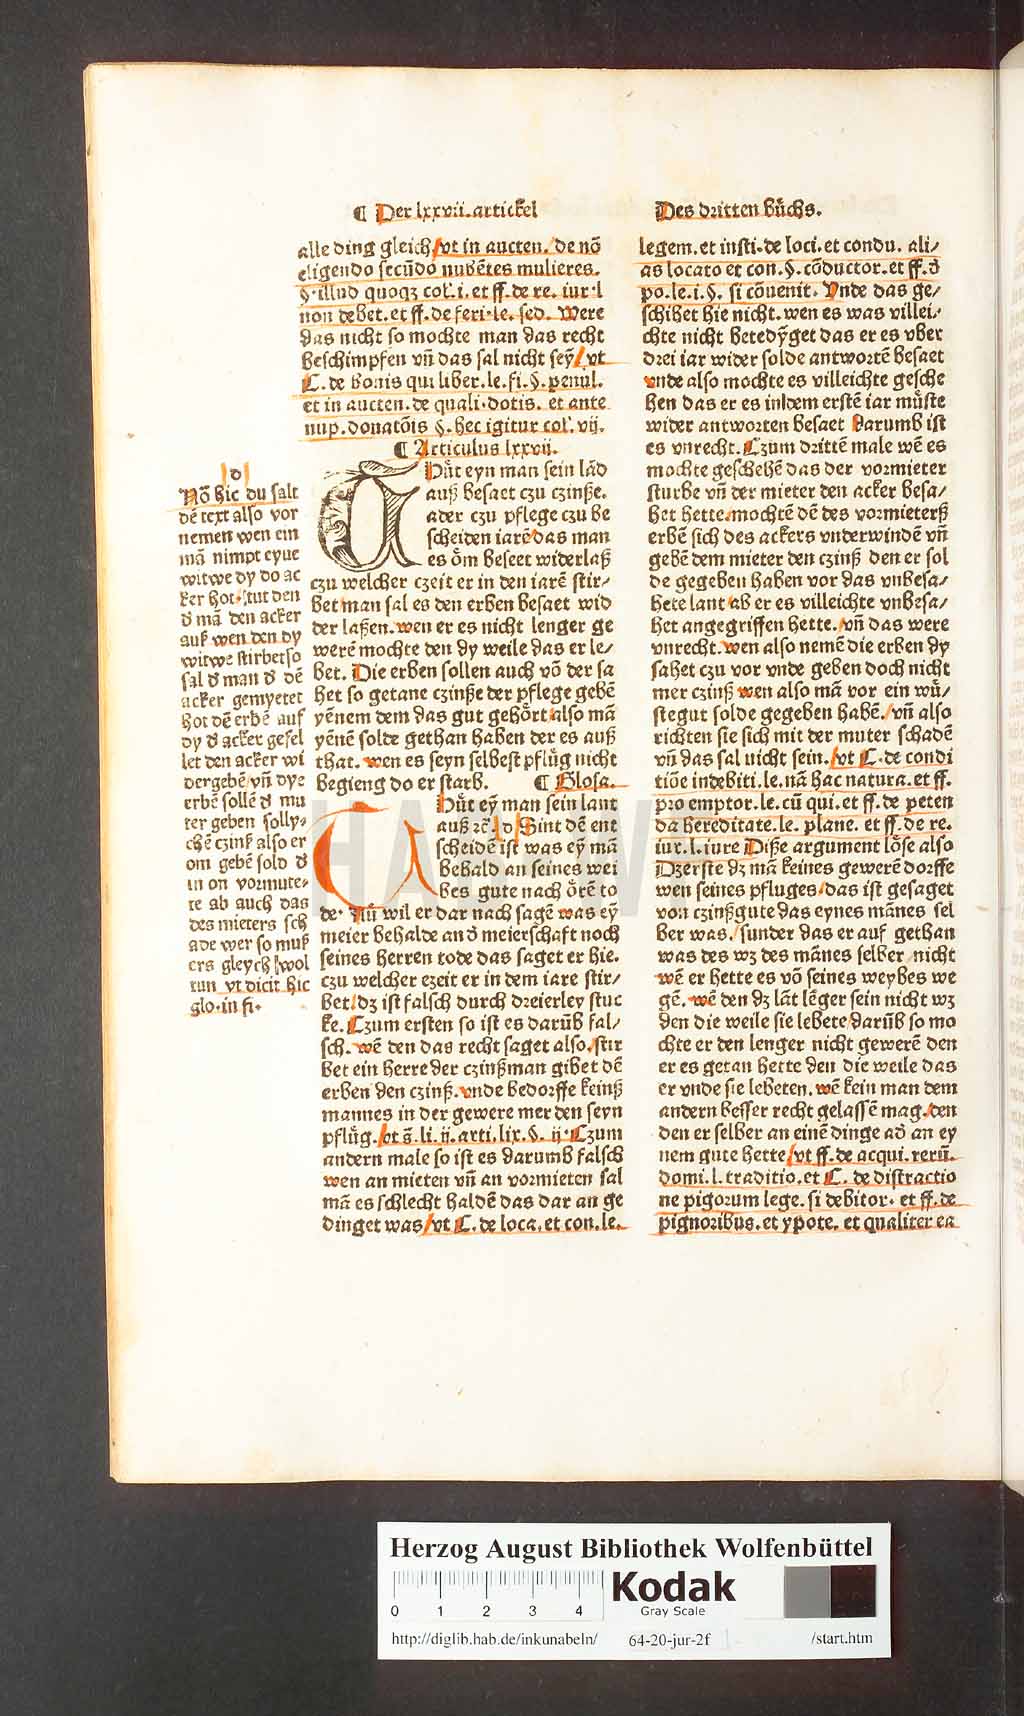 ¶ Der lxxvii. artickel
Des dritten bůchs.
alle ding gleich/ vt in aucten. de nō
eligendo secūdo nubētes mulieres.
§. illud quoqꝫ col'. i. et ff. de re. iur. l
non debet. et ff. de feri. le. sed. Were
das nicht so mochte man das recht
beschimpfen vñ das sal nicht sey/ vt
C. de bonis qui liber. le. fi. §. penul.
et in aucten. de quali. dotis. et ante
nup. donatōis §. hec igitur col'. vij.
¶ Articulus lxxvii.
Tůt eyn man sein lād
auß besaet czu czinße.
ader czu pflege czu be
scheiden iarē das man
es öm beseet widerlaß
czu welcher czeit er in den iarē stir/
bet man sal es den erben besaet wid
der laßen. wen er es nicht lenger ge
werē mochte den dy weile das er le/
bet. Die erben sollen auch vō der sa
het so getane czinße der pflege gebē
yēnem dem das gut gehört also mā
yēnē solde gethan haben der es auß
that. wen es seyn selbest pflůg nicht
begieng do er starb. ¶ Glosa.
Tůt ey man sein lant
auß ꝛc̄. d Sint dē ent
scheidē ist was ey mā
behald an seines wei
bes gute nach örē to
de. Nů wil er dar nach sagē was ey
meier behalde an d̄ meierschaft noch
seines herren tode das saget er hie.
czu welcher czeit er in dem iare stir/
bet/ dz ist falsch durch dreierley stuc
ke. Czum ersten so ist es darūb fal/
sch. wē den das recht saget also. stir
bet ein herre der czinßman gibet dē
erben den czinß. vnde bedorffe keinß
mannes in der gewere mer den seyn
pflůg. vt s̄. li. ij. arti. lix. §. ij. Czum
andern male so ist es darumb falsch
wen an mieten vñ an vormieten sal
mā es schlecht haldē das dar an ge
dinget was/ vt C. de loca. et con. le.
d
Nō hic du salt
dē text also vor
nemen wen ein
mā nimpt eyne
witwe dy do ac
ker hot. tut den
d̄ mā den acker
auß wen den dy
witwe stirbet so
sal d̄ man d̄ dē
acker gemyetet
hot dē erbē auf
dy d̄ acker gefel
let den acker wi
dergebē vñ dye
erbē sollē d̄ mu
ter geben solly/
chē czinß also er
om gebē sold d̄
in on vormute/
te ab auch das
des mieters sch
ade wer so muß
ers gleych wol
tun vt dicit hic
glo. in fi.
legem. et insti. de loci. et condu. ali/
as locato et con. §. cōductor. et ff. d̄
po. le. i. §. si cōuenit. Vnde das ge/
schibet hie nicht. wen es was villei/
chte nicht betedyget das er es vber
drei iar wider solde antwortē besaet
vnde also mochte es villeichte gesche
hen das er es in dem erstē iar můste
wider antworten besaet Darumb ist
es vnrecht. Czum drittē male wē es
mochte geschehē das der vormieter
sturbe vñ der mieter den acker besa/
het hette. mochtē dē des vormieterß
erbē sich des ackers vnderwindē vñ
gebē dem mieter den czinß den er sol
de gegeben haben vor das vnbesa/
hete lant ab er es villeichte vnbesa/
het angegriffen hette. vñ das were
vnrecht. wen also nemē die erben dy
sahet czu vor vnde geben doch nicht
mer czinß wen also mā vor ein wů/
stegut solde gegeben habē. vñ also
richten sie sich mit der muter schadē
vñ das sal nicht sein. vt C. de condi
tiōe indebiti. le. nā hac natura. et ff.
pro emptor. le. cū qui. et ff. de peten
da hereditate. le. plane. et ff. de re.
iur. l. iure Diße argument löse also
Dzerste dz mā keines gewerē dorffe
wen seines pfluges. das ist gesaget
von czinßgute das eynes mānes sel
ber was. sunder das er auf gethan
was des wz des mānes selber nicht
wē er hette es vō seines weybes we
gē. wē den dz lāt lēger sein nicht wz
den die weile sie lebete darūb so mo
chte er den lenger nicht gewerē den
er es getan hette den die weile das
er vnde sie lebeten. wē kein man dem
andern besser recht gelassē mag. den
den er selber an einē dinge ad̄ an ey
nem gute hette/ vt ff. de acqui. rerū.
domi. l. traditio. et C. de distractio
ne pigorum lege. si debitor. et ff. de
pignoribus. et ypote. et qualiter ea
HAB WF
Herzog August Bibliothek Wolfenbüttel
0 1 2 3 4
Kodak
Gray Scale
http://diglib.hab.de/inkunabeln/ 64-20-jur-2f /start.htm